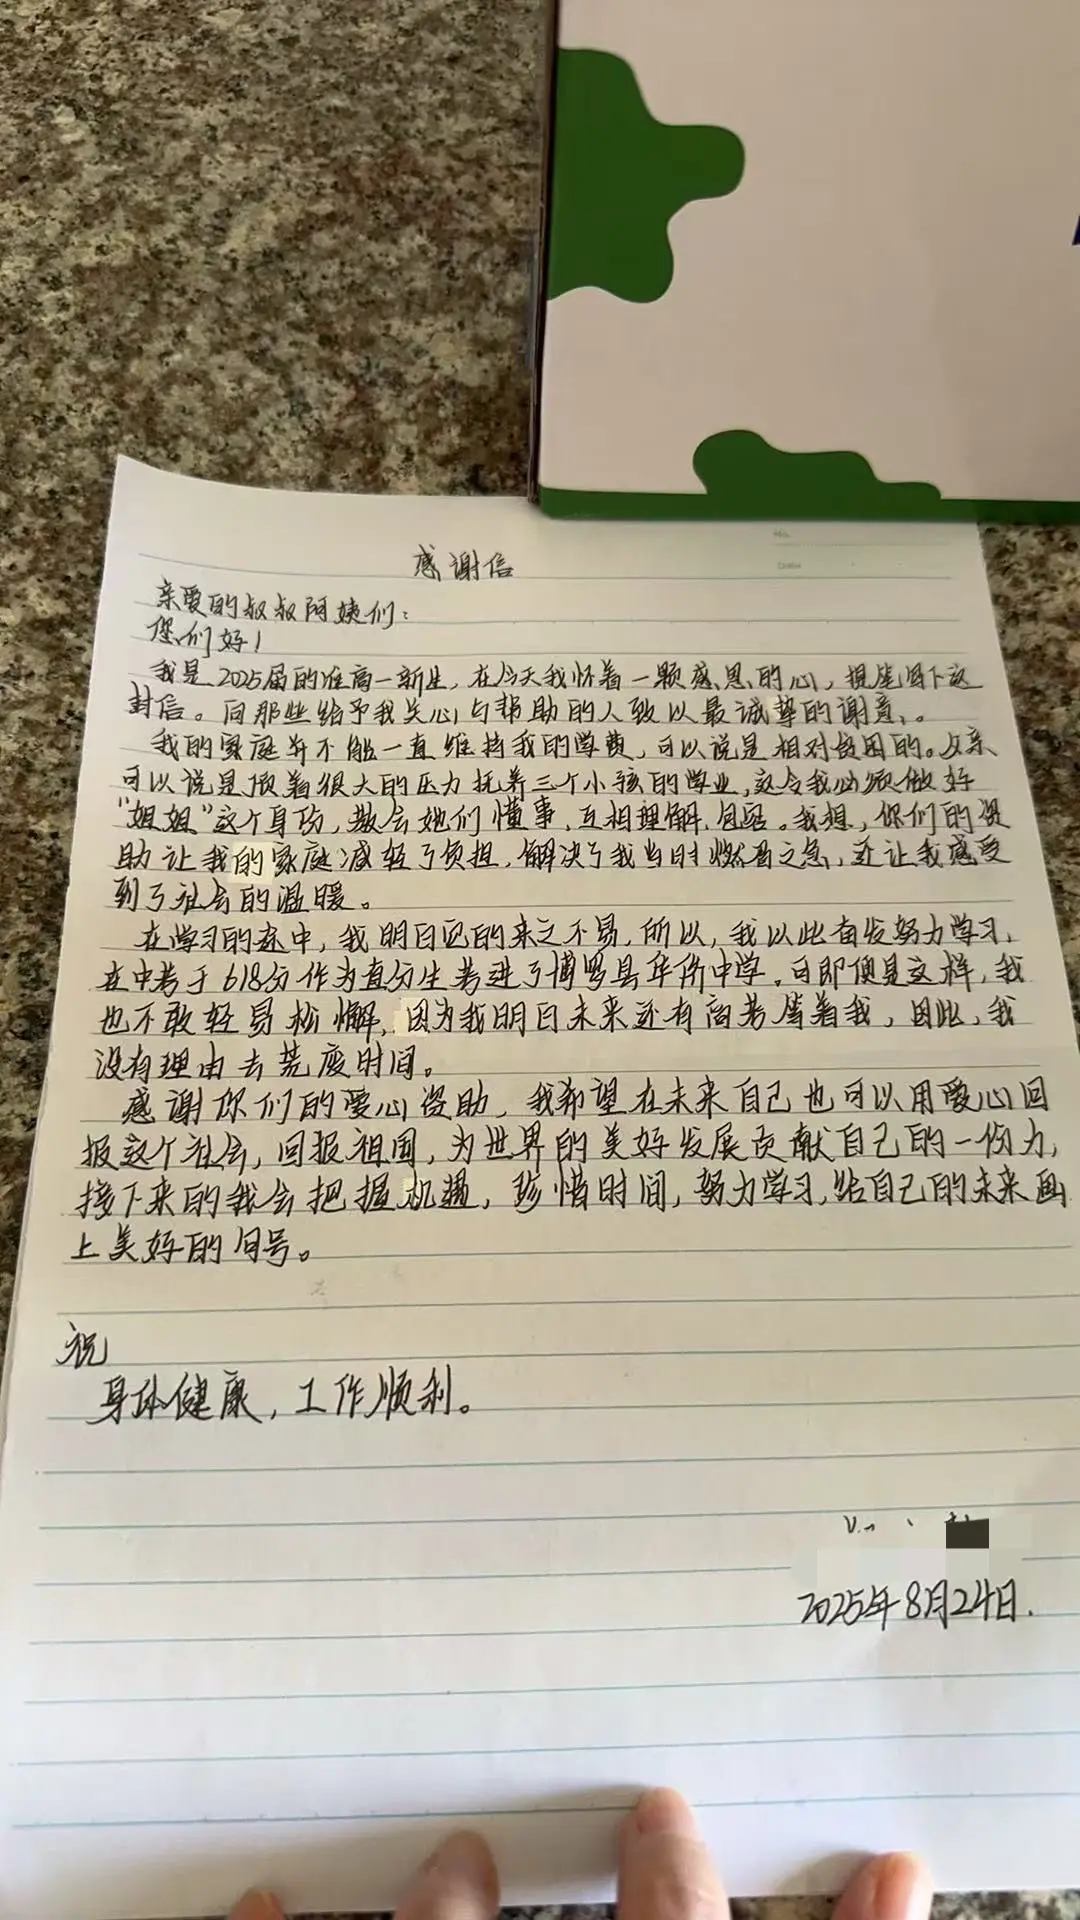 No.
Date
感谢信
亲爱的叔叔阿姨们：
您们好！
我是2025届的准高一新生，在今天我怀着一颗感恩的心，提笔写下这
封信。向那些给予我关心与帮助的人致以最诚挚的谢意。
我的家庭并不能一直维持我的学费，可以说是相对贫困的。父亲
可以说是顶着很大的压力抚养三个小孩的学业，这令我必须做好
“姐姐”这个身份，教会她们懂事，互相理解，包容。我想，你们的资
助让我的家庭减轻了负担，解决了我当时燃眉之急，还让我感受
到了社会的温暖。
在学习的途中，我明白的来之不易，所以，我以此奋发努力学习，
在中考于618分作为直分生考进了博罗县华侨中学。可即便是这样，我
也不敢轻易松懈，因为我明白未来还有高考等着我，因此，我
没有理由去荒废时间。
感谢你们的爱心资助，我希望在未来自己也可以用爱心回
报这个社会，回报祖国，为世界的美好发展贡献自己的一份力，
接下来的我会把握机遇，珍惜时间，努力学习，给自己的未来画
上美好的句号。
祝
身体健康，工作顺利。
2025年8月24日.